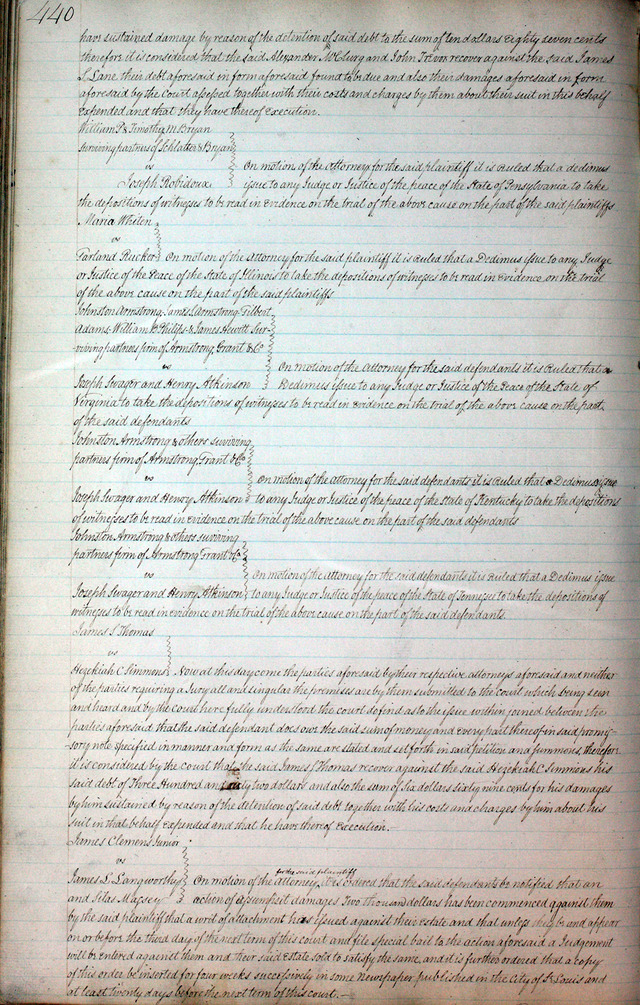 440
have sustained damage by reason of the detention of said debt to the sum of ten dollars Eighty seven cents
therefore it is considered that the said Alexander McClurg and John Trevor recover against the said James
S. Lane their debt aforesaid in form aforesaid found to be due and also their damages aforesaid in form
aforesaid by the Court assessed together with their costs and charges by them about their suit in this behalf
expended and that they have thereof execution.
William P. & Timothy M Bryan
surviving partners of Schlatter & Bryan
vs
On motion of the Attorney for the said plaintiff it is Ruled that a dedimus
Joseph Robidoux
issue to any Judge or Justice of the peace of the State of Pensylvania to take
the depositions of witnesses to be read in evidence on the trial of the above cause on the part of the said plaintiffs
Maria Whiten
vs
Garland Rucker On motion of the Attorney for the said plaintiff it is Ruled that a Dedimus issue to any Judge
or Justice of the Peace of the State of Illinois to take the depositions of witnesses to be read in Evidence on the trial
of the above cause on the part of the said plaintiffs
Johnston Armstrong James Armstrong Filbert
Adams William P. Philips & James Hewitt Sur-
viving partners firm of Armstrong, Grant & Co
vs
On motion of the Attorney for the said defendants it is Ruled that a
Joseph Swager and Henry Atkinson
Dedimus issue to any Judge or Justice of the Peace of the State of
Virginia to take the depositions of witnesses to be read in Evidence on the trial of the above cause on the part
of the said defendants
Johnston Armstrong & others surviving
partners firm of Armstrong, Grant & Co
vs
On motion of the attorney for the said defendants it is Ruled that a Dedimus issue
Joseph Swager and Henry Atkinson
to any Judge or Justice of the peace of the State of Kentucky to take the depositions
of witnesses to be read in evidence on the trial of the above cause on the part of the said defendants
Johnston Armstrong & others surviving
partners firm of Armstrong Grant & Co
vs
On motion of the attorney for the said defendants it is Ruled that a Dedimus issue
Joseph Swager and Henry Atkinson
to any Judge or Justice of the peace of the State of Tennessee to take the depositions of
witnesses to be read in evidence on the trial of the above cause on the part of the said defendants.
James S Thomas
vs
Hezekiah C Simmons Now at this day come the parties aforesaid by their respective attorneys aforesaid and neither
of the parties requiring a Jury all and singular the premises are by them submitted to the court which being seen
and heard and by the Court here fully understood the court do find as to the issue within joined between the
parties aforesaid that the said defendant does owe the said sum of money and every part thereof in said promis-
sory note specified in manner and form as the same are stated and set forth in said petition and summons, therefore
it is considered by the court that the said James S Thomas recover against the said Hezekiah C Simmons his
said debt of Three Hundred and two dollars and also the sum of six dollars sixty nine cents for his damages
by him sustained by reason of the detention of said debt together with his costs and charges by him about his
suit in that behalf expended and that he have thereof Execution.
James Clemens Junior
vs
for the said plaintiff
James L Langworthy On motion of the attorney it is ordered that the said defendants be notified that an
and Silas Massey action of assumpsit damages Two thousand dollars has been commenced against them
by the said plaintiff that a writ of attachment has issued against their Estate and that unless they be and appear
on or before the third day of the next term of this court and file special bail to the action aforesaid a Judgement
will be entered against them and their said Estate sold to satisfy the same, and it is further ordered that a copy
of this order be inserted for four weeks successively in some Newspaper published in the City of St Louis and
at least twenty days before the next term of this court.